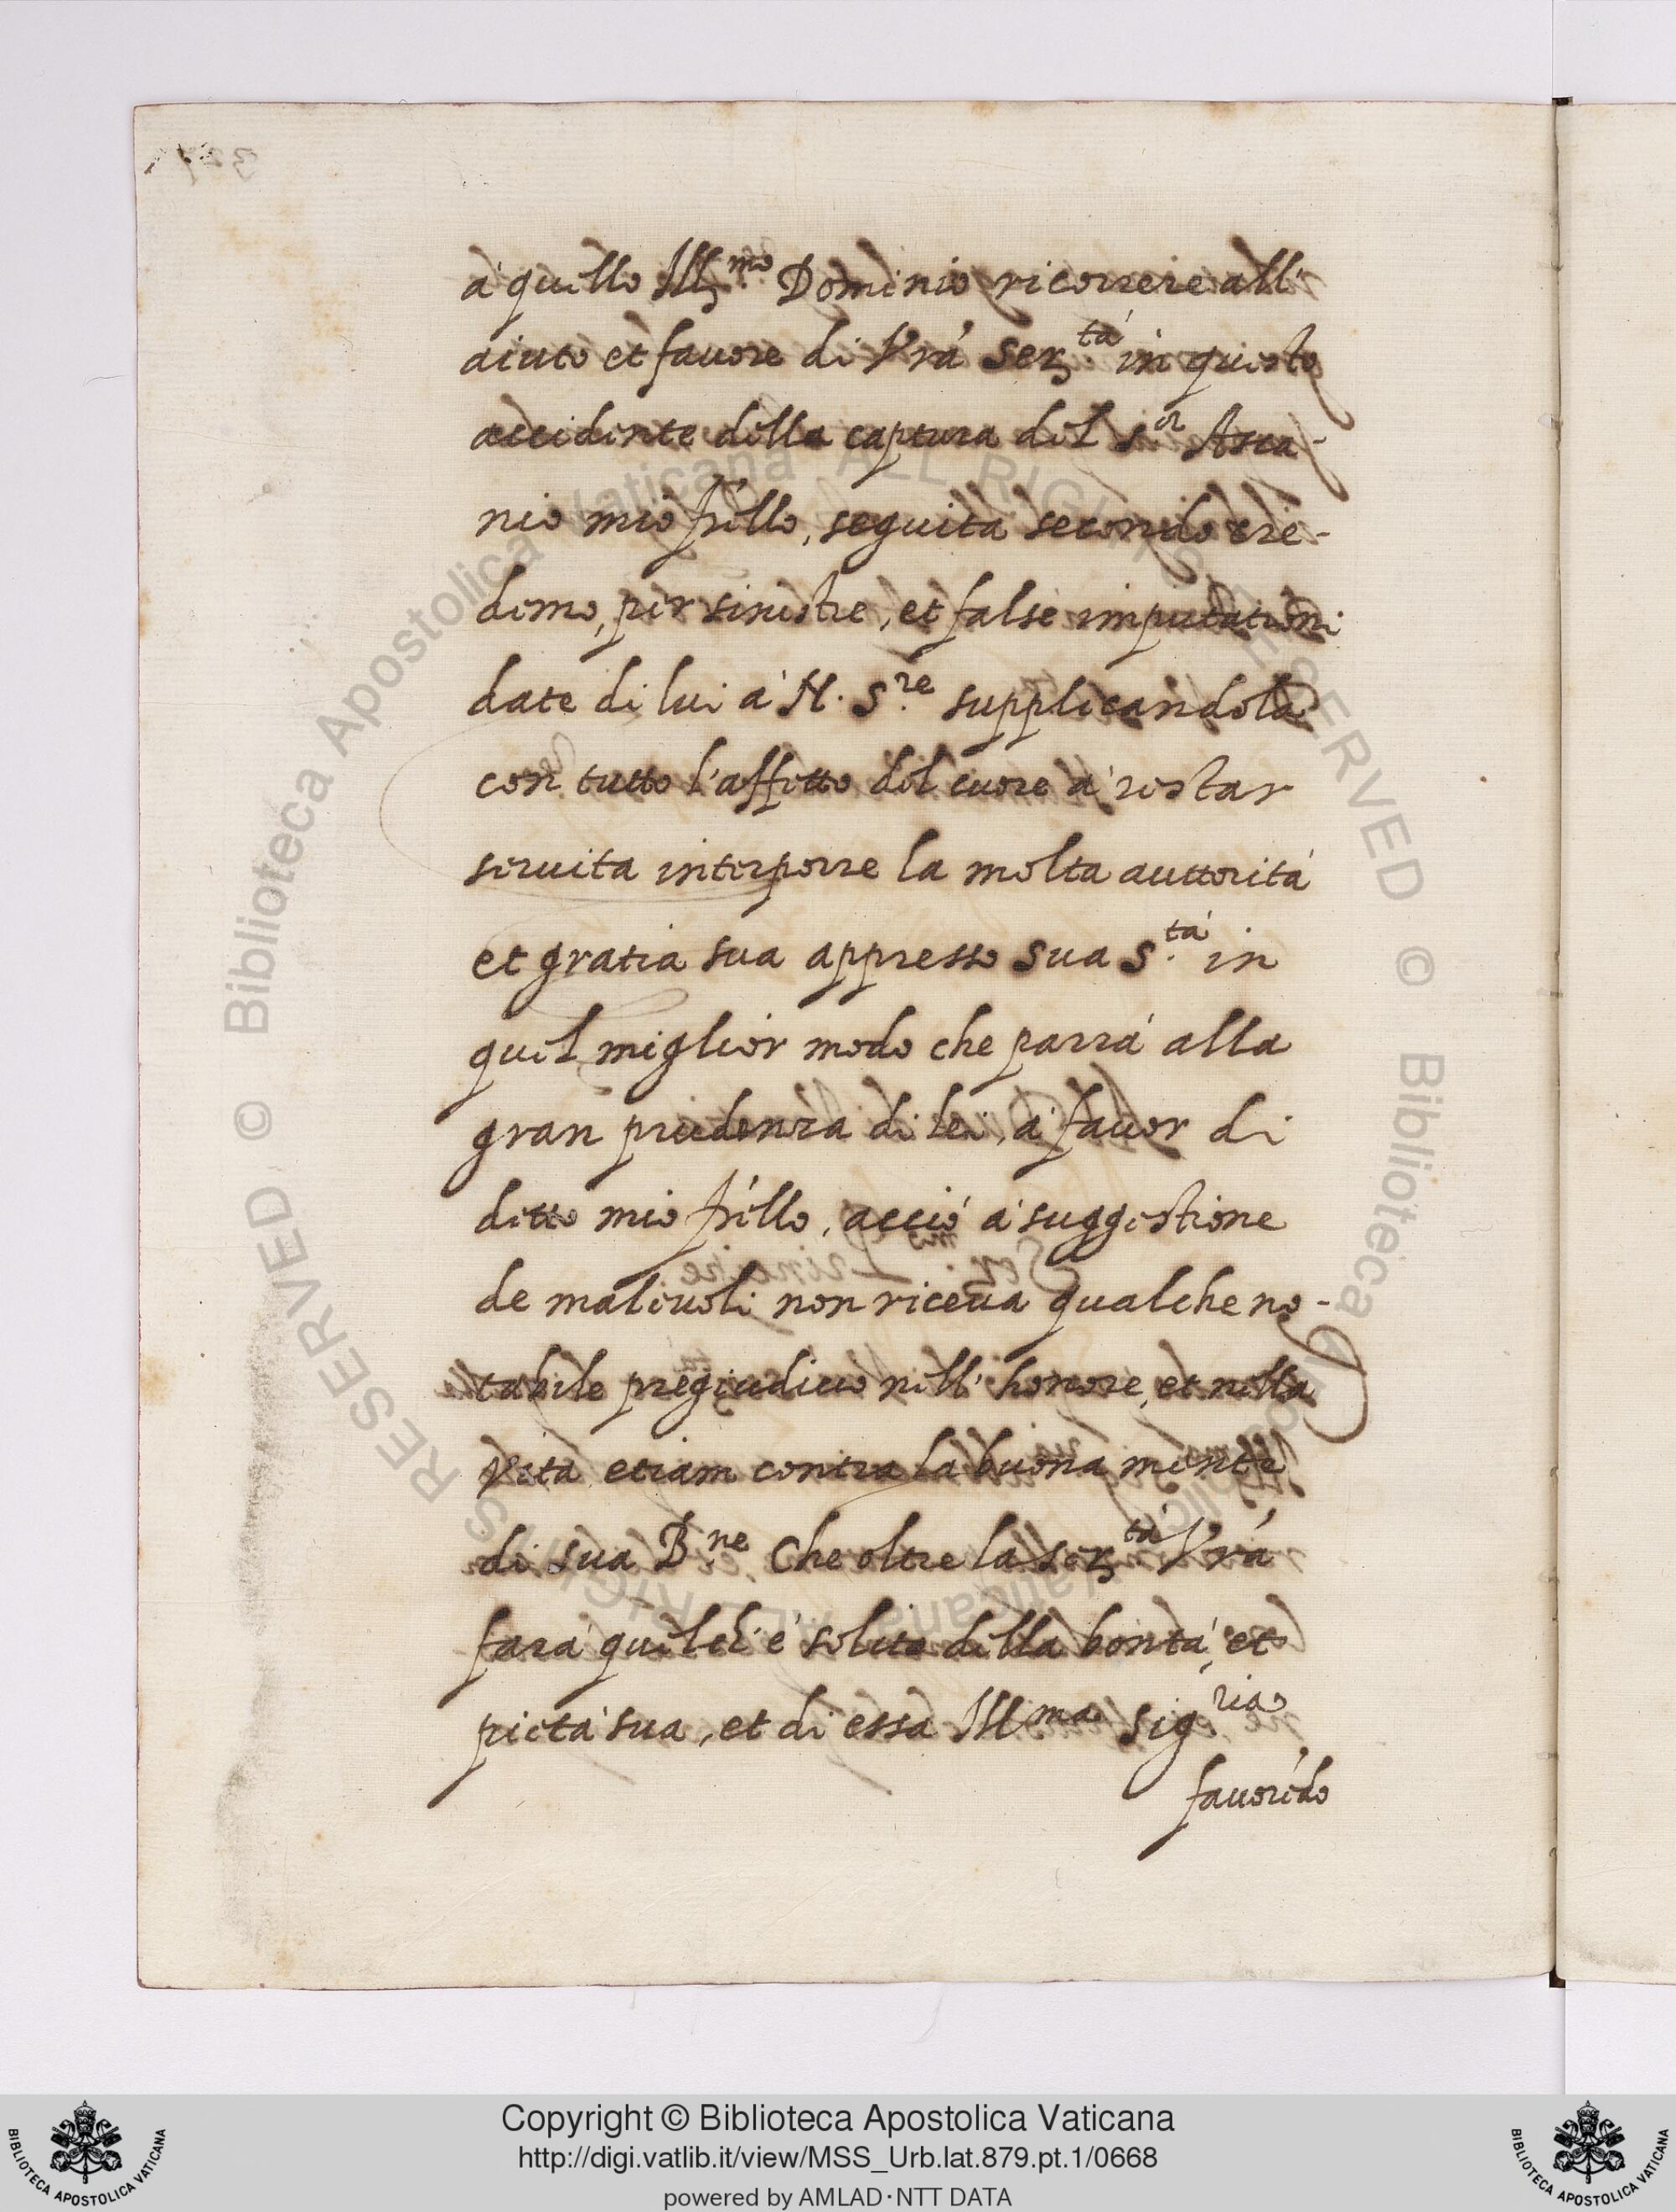 à quello Ill.mo Dominio ricorrere all'
aiuto et favore di Vrá Ser.tá in questo
accidente della captura del S.or Asca-
nio mio frĺlo, seguita secondo cre-
demo, per sinistre, et false imputationi
date di lui à N. S.re supplicandola
con tutto l'affetto del cuore à restar
servita interporre la molta auttorità
et gratia sua appresso sua S.tá in
quel miglior modo che parrà alla
gran prudenza di lei, à favor di
detto mio frĺlo, acciò à suggestione
de malevoli non riceva qualche no-
tabile pregiudicio nell'honore, et nella
vita etiam contra la buona mente
di sua B.ne Che oltre la Ser.tá Vrá
farà quel ch'è solito della bontà, et
pietà sua, et di essa Ill.ma Sig.ria
favorédo
Copyright © Biblioteca Apostolica Vaticana
http://digi.vatlib.it/view/MSS_Urb.lat.879.pt.1/0668
powered by AMLAD·NTT DATA
BIBLIOTECA APOSTOLICA VATICANA
BIBLIOTECA APOSTOLICA VATICANA
© Biblioteca Apostolica Vaticana ALL RIGHTS RESERVED
© Biblioteca Apostolica Vaticana ALL RIGHTS RESERVED